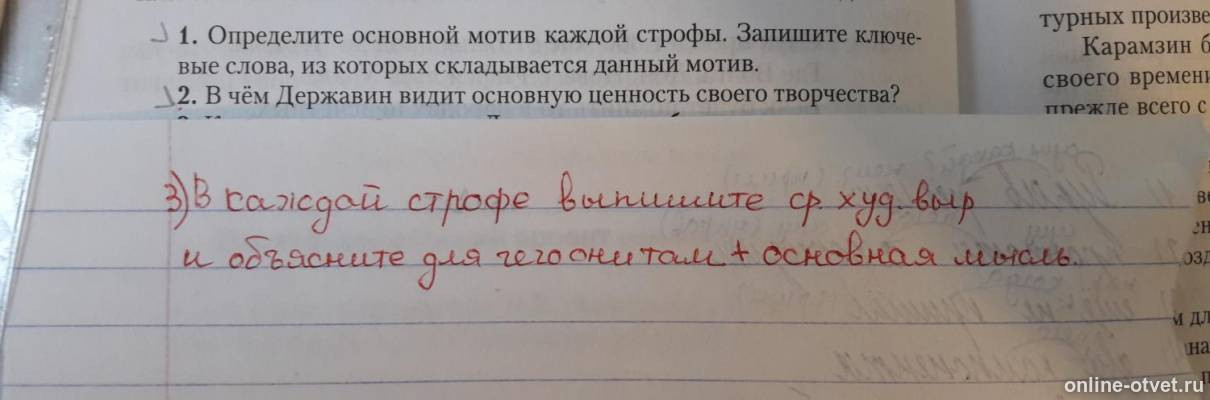 1. Определите основной мотив каждой строфы. Запишите ключе-
вые слова, из которых складывается данный мотив.
2. В чём Державин видит основную ценность своего творчества?
турных произве
Карамзин б
своего времени
прежде всего с
3) В каждай строфе выпишите ср. худ. выр
и объясните для чего они там + основная мысль.
online-otvet.ru